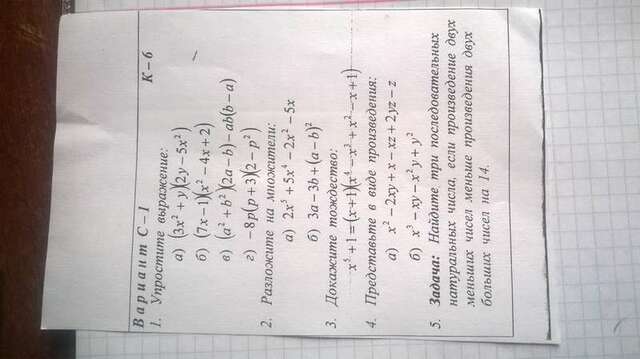 Вариант С – 1 К – 6
1. Упростите выражение:
а) (3x² + y)(2y – 5x²)
б) (7x – 1)(x² – 4x + 2)
в) (a² + b²)(2a – b) – ab(b – a)
г) – 8p(p + 3)(2 – p²)
2. Разложите на множители:
а) 2x⁵ + 5x⁴ – 2x² – 5x
б) 3a – 3b + (a – b)²
3. Докажите тождество:
x⁵ + 1 = (x + 1)(x⁴ – x³ + x² – x + 1)
4. Представьте в виде произведения:
а) x² – 2xy + x – xz + 2yz – z
б) x³ – xy – x²y + y²
5. Задача: Найдите три последовательных
натуральных числа, если произведение двух
меньших чисел меньше произведения двух
больших чисел на 14.